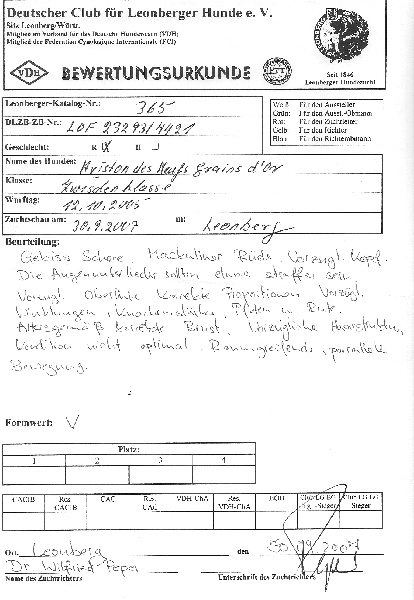 Deutscher Club für Leonberger Hunde e. V.
Sitz Leonberg/Württ.
Mitglied im Verband für das Deutsche Hundewesen (VDH)
Mitglied der Federation Cynologique Internationale (FCI)
VDH
BEWERTUNGSURKUNDE
Seit 1846
Leonberger Hundezucht
Leonberger-Katalog-Nr.: 365
DLZB-ZB-Nr.: LOF 23293/4421
Geschlecht: R X H
Weiß Für den Aussteller
Grün: Für den Ausst.-Obmann
Rot: Für den Zuchtrichter
Gelb Für den Richter
Blau Für den Richterobmann
Name des Hundes: Ariston des Neufs Grains d'Or
Klasse: Zwischenklasse
Wurftag: 12.10.2005
Zuchtschau am: 30.9.2007 in: Leonberg
Beurteilung:
Gebiss Schere, Maskuliner Rüde, Vorzügl. Kopf.
Die Augenunterlieder sollten etwas straffer sein
Vorzügl. Oberlinie korrekte Proportionen Vorzügl.
Winklungen, Knochenstärke, Pfoten u. Rute.
Altersgemäß korrekte Brust, Vorzügliche
Kondition nicht optimal, Raumgreifende, parallele
Bewegung.
Formwert: V
Platz:
1 2 3 4
CACIB Res. CACIB CAC Res. CAC VDH-ChA Res. VDH-ChA BOB Club Sieger Club Sieger
Ort: Leonberg den 30.09.2007
Dr. Wilfried Peper
Name des Zuchtrichters Unterschrift des Zuchtrichters